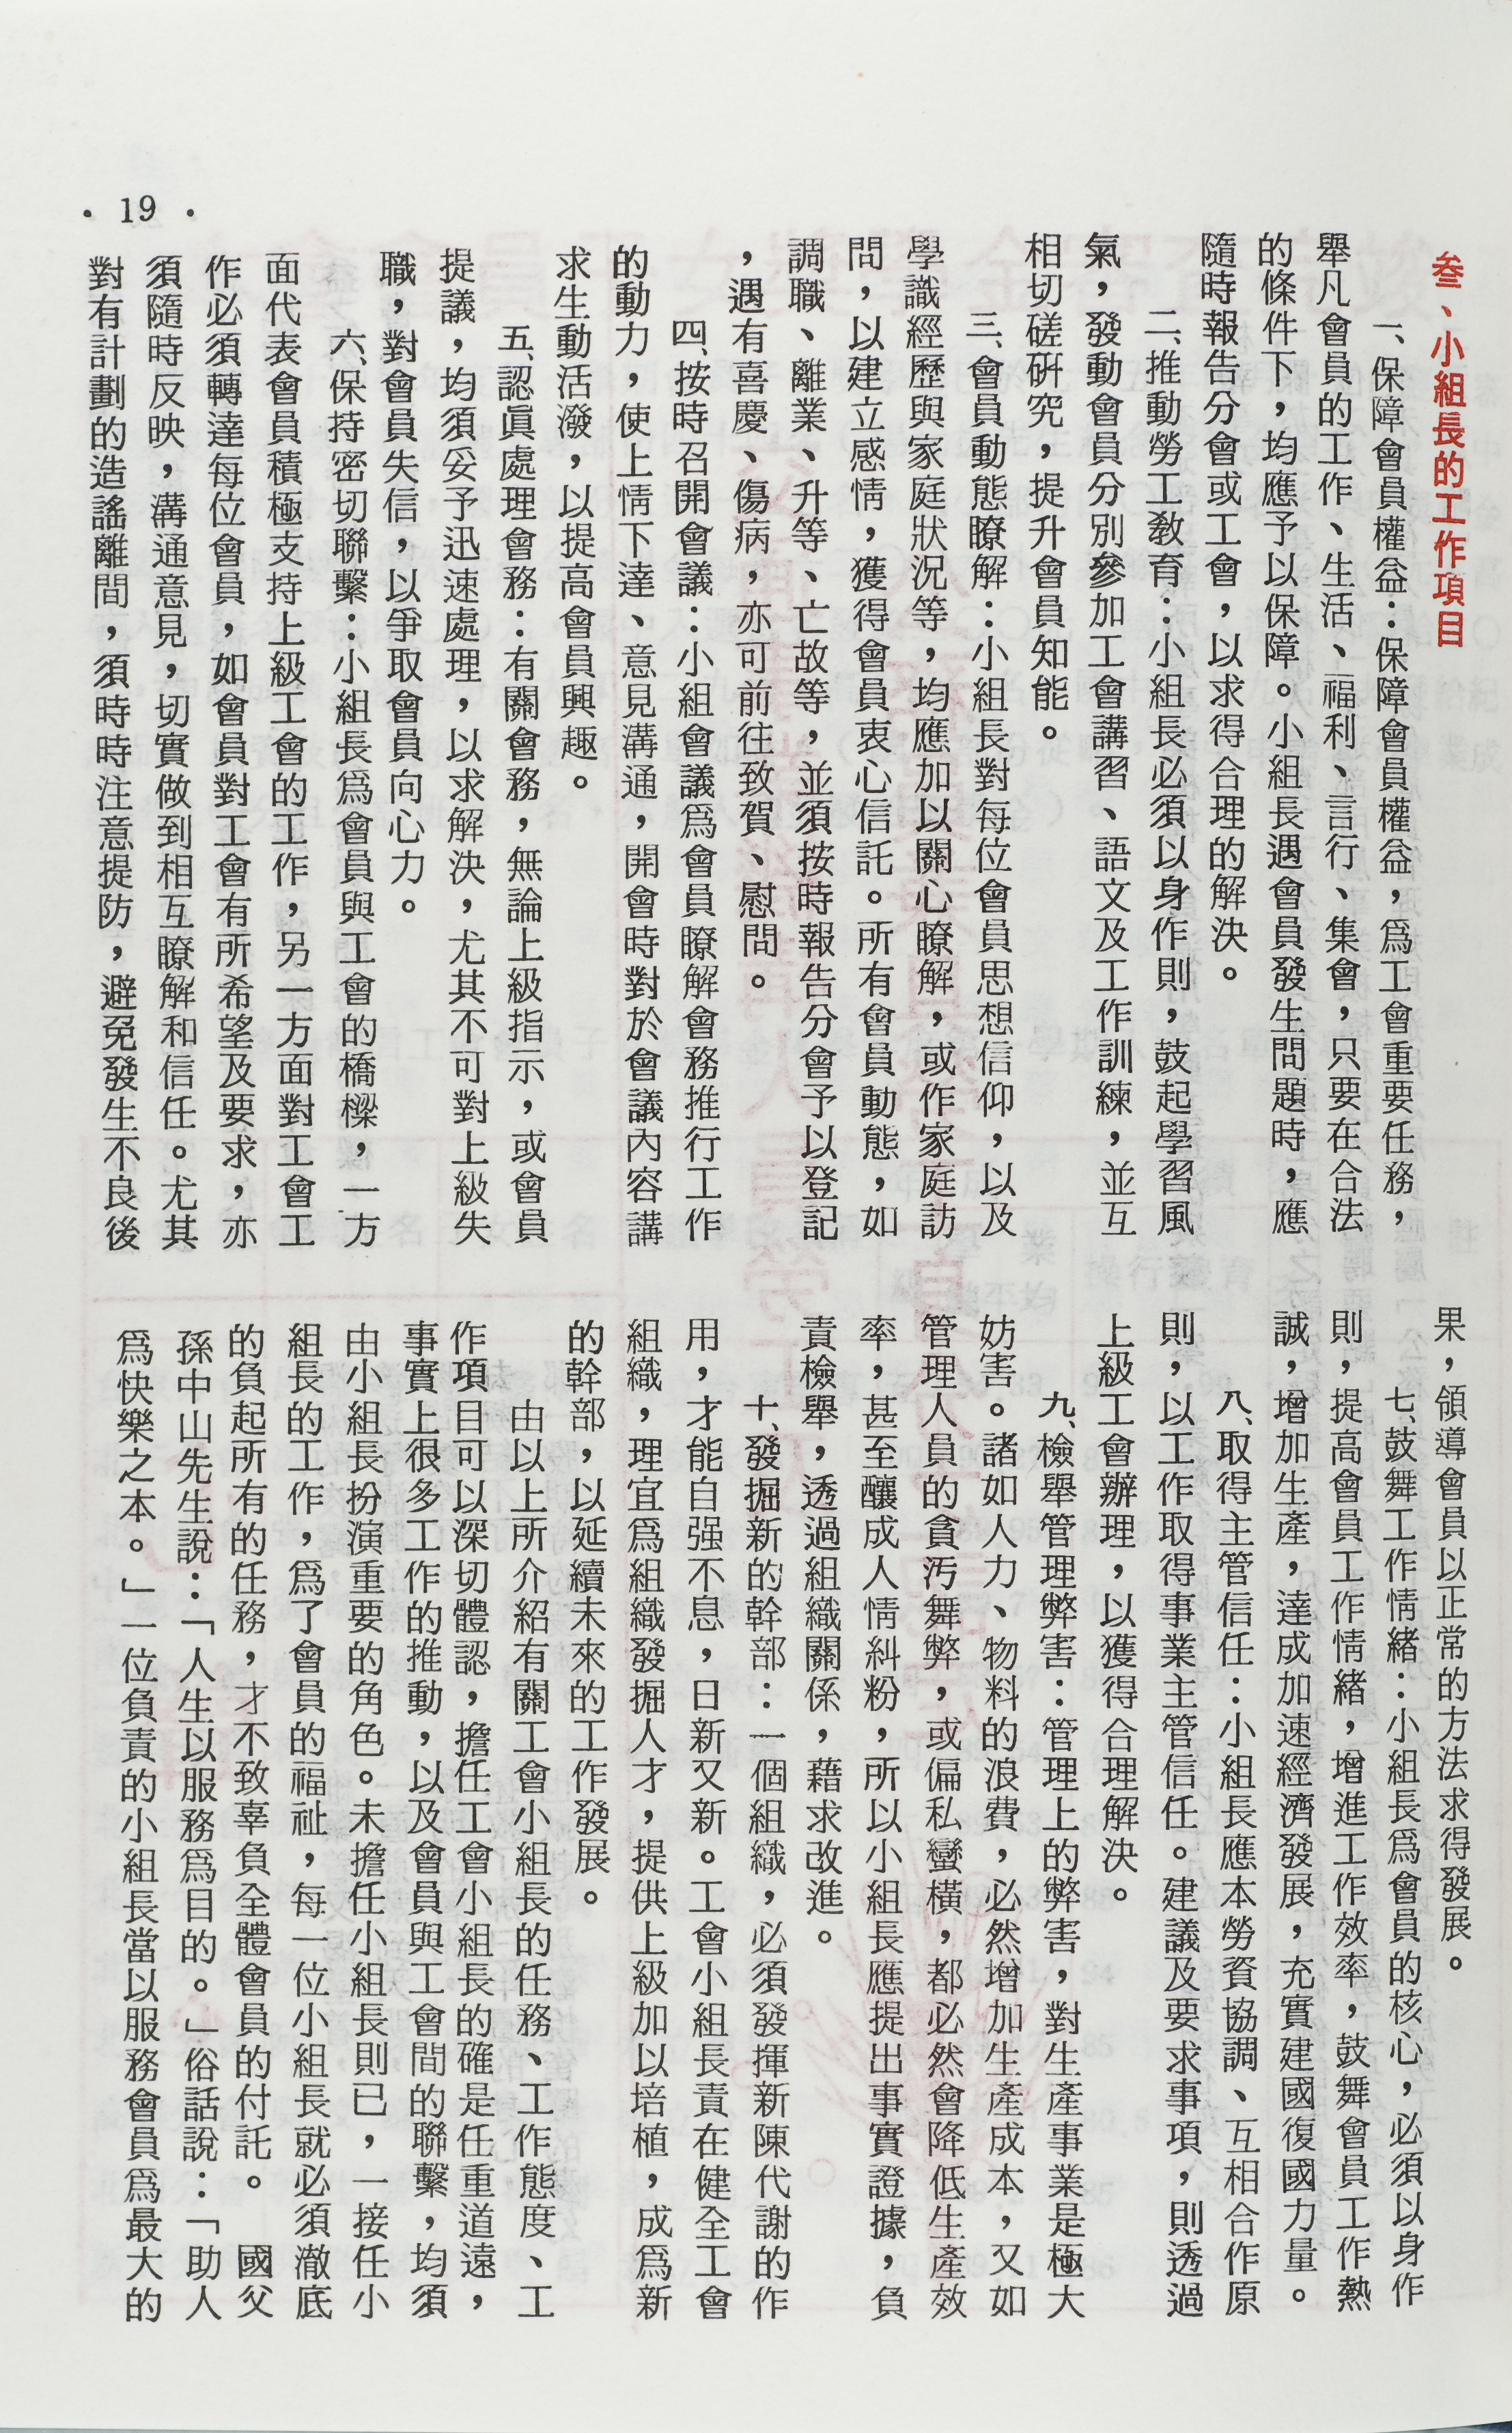 叁、小組長的工作項目
一、保障會員權益：保障會員權益，爲工會重要任務，
舉凡會員的工作、生活、福利、言行、集會，只要在合法
的條件下，均應予以保障。小組長遇會員發生問題時，應
隨時報告分會或工會，以求得合理的解決。
二、推動勞工教育：小組長必須以身作則，鼓起學習風
氣，發動會員分別參加工會講習、語文及工作訓練，並互
相切磋硏究，提升會員知能。
三、會員動態瞭解：小組長對每位會員思想信仰，以及
學識經歷與家庭狀況等，均應加以關心瞭解，或作家庭訪
問，以建立感情，獲得會員衷心信託。所有會員動態，如
調職、離業、升等、亡故等，並須按時報告分會予以登記
，遇有喜慶、傷病，亦可前往致賀、慰問。
四、按時召開會議：小組會議爲會員瞭解會務推行工作
的動力，使上情下達、意見溝通，開會時對於會議內容講
求生動活潑，以提高會員興趣。
五、認眞處理會務：有關會務，無論上級指示，或會員
提議，均須妥予迅速處理，以求解決，尤其不可對上級失
職，對會員失信，以爭取會員向心力。
六、保持密切聯繫：小組長爲會員與工會的橋樑，一方
面代表會員積極支持上級工會的工作，另一方面對工會工
作必須轉達每位會員，如會員對工會有所希望及要求，亦
須隨時反映，溝通意見，切實做到相互瞭解和信任。尤其
對有計劃的造謠離間，須時時注意提防，避免發生不良後
果，領導會員以正常的方法求得發展。
七、鼓舞工作情緒：小組長爲會員的核心，必須以身作
則，提高會員工作情緒，增進工作效率，鼓舞會員工作熱
誠，增加生產，達成加速經濟發展，充實建國復國力量。
八、取得主管信任：小組長應本勞資協調、互相合作原
則，以工作取得事業主管信任。建議及要求事項，則透過
上級工會辦理，以獲得合理解決。
九、檢舉管理弊害：管理上的弊害，對生產事業是極大
妨害。諸如人力、物料的浪費，必然增加生產成本，又如
管理人員的貪汚舞弊，或偏私蠻橫，都必然會降低生產效
率，甚至釀成人情糾粉，所以小組長應提出事實證據，負
責檢舉，透過組織關係，藉求改進。
十、發掘新的幹部：一個組織，必須發揮新陳代謝的作
用，才能自强不息，日新又新。工會小組長責在健全工會
組織，理宜爲組織發掘人才，提供上級加以培植，成爲新
的幹部，以延續未來的工作發展。
由以上所介紹有關工會小組長的任務、工作態度、工
作項目可以深切體認，擔任工會小組長的確是任重道遠，
事實上很多工作的推動，以及會員與工會間的聯繫，均須
由小組長扮演重要的角色。未擔任小組長則已，一接任小
組長的工作，爲了會員的福祉，每一位小組長就必須澈底
的負起所有的任務，才不致辜負全體會員的付託。　國父
孫中山先生說：「人生以服務爲目的。」俗話說：「助人
爲快樂之本。」一位負責的小組長當以服務會員爲最大的
· 19 ·